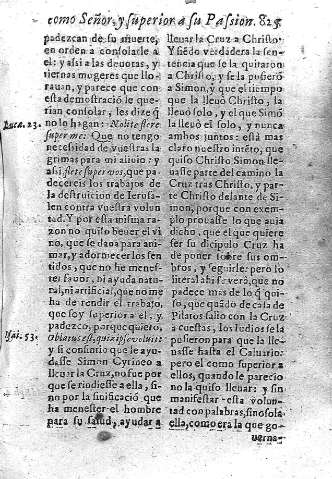 como Señor, y superior a su Passion. 825
padezcan de su muerte,
en orden a consolarle a
el: y assi a las deuotas, y
tiernas mugeres que llo-
rauan, y parece que con
esta demostració le que-
rian consolar, les dize q̃
Luca. 23.
no lo hagan: Nolite flere
super me: Que no tengo
necessidad de vuestras la
grimas para mi aliuio: y
assi flete super vos, que pa-
decereis los trabajos de
la destruicion de Ierusa-
len contra vuestra volun
tad. Y por esta misma ra-
zon no quiso beuer el vi
no, que se daua para ani-
mar, y adormecer los sen
tidos, que no he menes-
ter fauor, ni ayuda natu-
ral, ni artificial, que no me
ha de rendir el trabajo,
que soy superior a el, y
padezco, porque quiero,
Isai. 53.
Oblatus est, quia ipse voluit:
y si consintio que le ayu-
dasse Simon Cyrineo a
lleuar la Cruz, no fue por
que se rindiesse a ella, si-
no por la sinificació que
ha menester el hombre
para su salud, ayudar a
lleuar la Cruz a Christo.
Y siẽdo verdadera la sen-
tencia que se la quitaron
a Christo, y se la pusierõ
a Simon, y que el tiempo
que la lleuò Christo, la
lleuò solo, y el que Simõ
la lleuò el solo, y nunca
ambos juntos: està mas
claro nuestro intẽto, que
quiso Christo Simon lle-
uasse parte del camino la
Cruz tras Christo, y par-
te Christo delante de Si-
mon, porque con exem-
plo prouasse lo que auia
dicho, que el que quiere
ser su dicipulo Cruz ha
de poner sobre sus om-
bros, y seguirle: pero lo
literal a su ser và, que no
padece mas de lo q̃ qui-
so, que quãdo de casa de
Pilatos salio con la Cruz
a cuestas, los Iudios se la
pusieron para que la lle-
uasse hasta el Caluario:
pero el como superior a
ellos, quando le parecio
no la quiso lleuar: y sin
manifestar esta volun-
tad con palabras, sino sola
ella, como era la que go-
uerna-